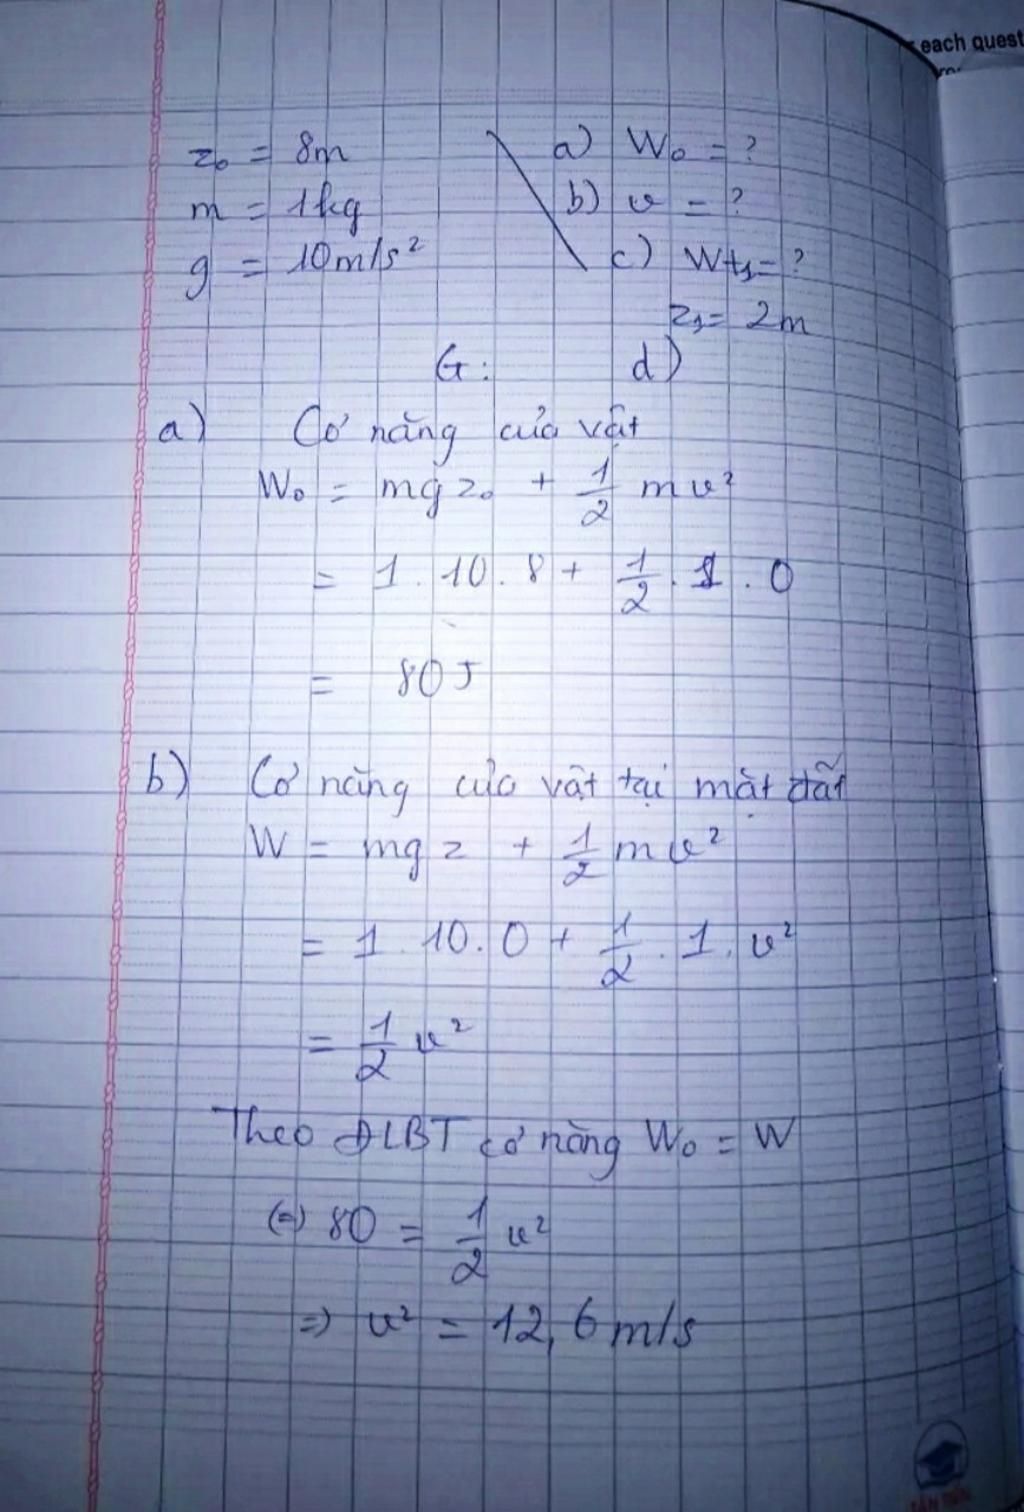 each quest
z₀ = 8m a) W₀ = ?
m = 1kg b) v = ?
g = 10m/s² c) Wt₁ = ?
z₁ = 2m
G: d)
a) Cơ năng của vật
W₀ = mgz₀ + 1/2 mv²
= 1 . 10 . 8 + 1/2 . 1 . 0
= 80J
b) Cơ năng của vật tại mặt đất
W = mgz + 1/2 mv²
= 1 . 10 . 0 + 1/2 . 1 . v²
= 1/2 v²
Theo ĐLBT cơ năng W₀ = W
(=) 80 = 1/2 v²
=) v² = 12,6 m/s